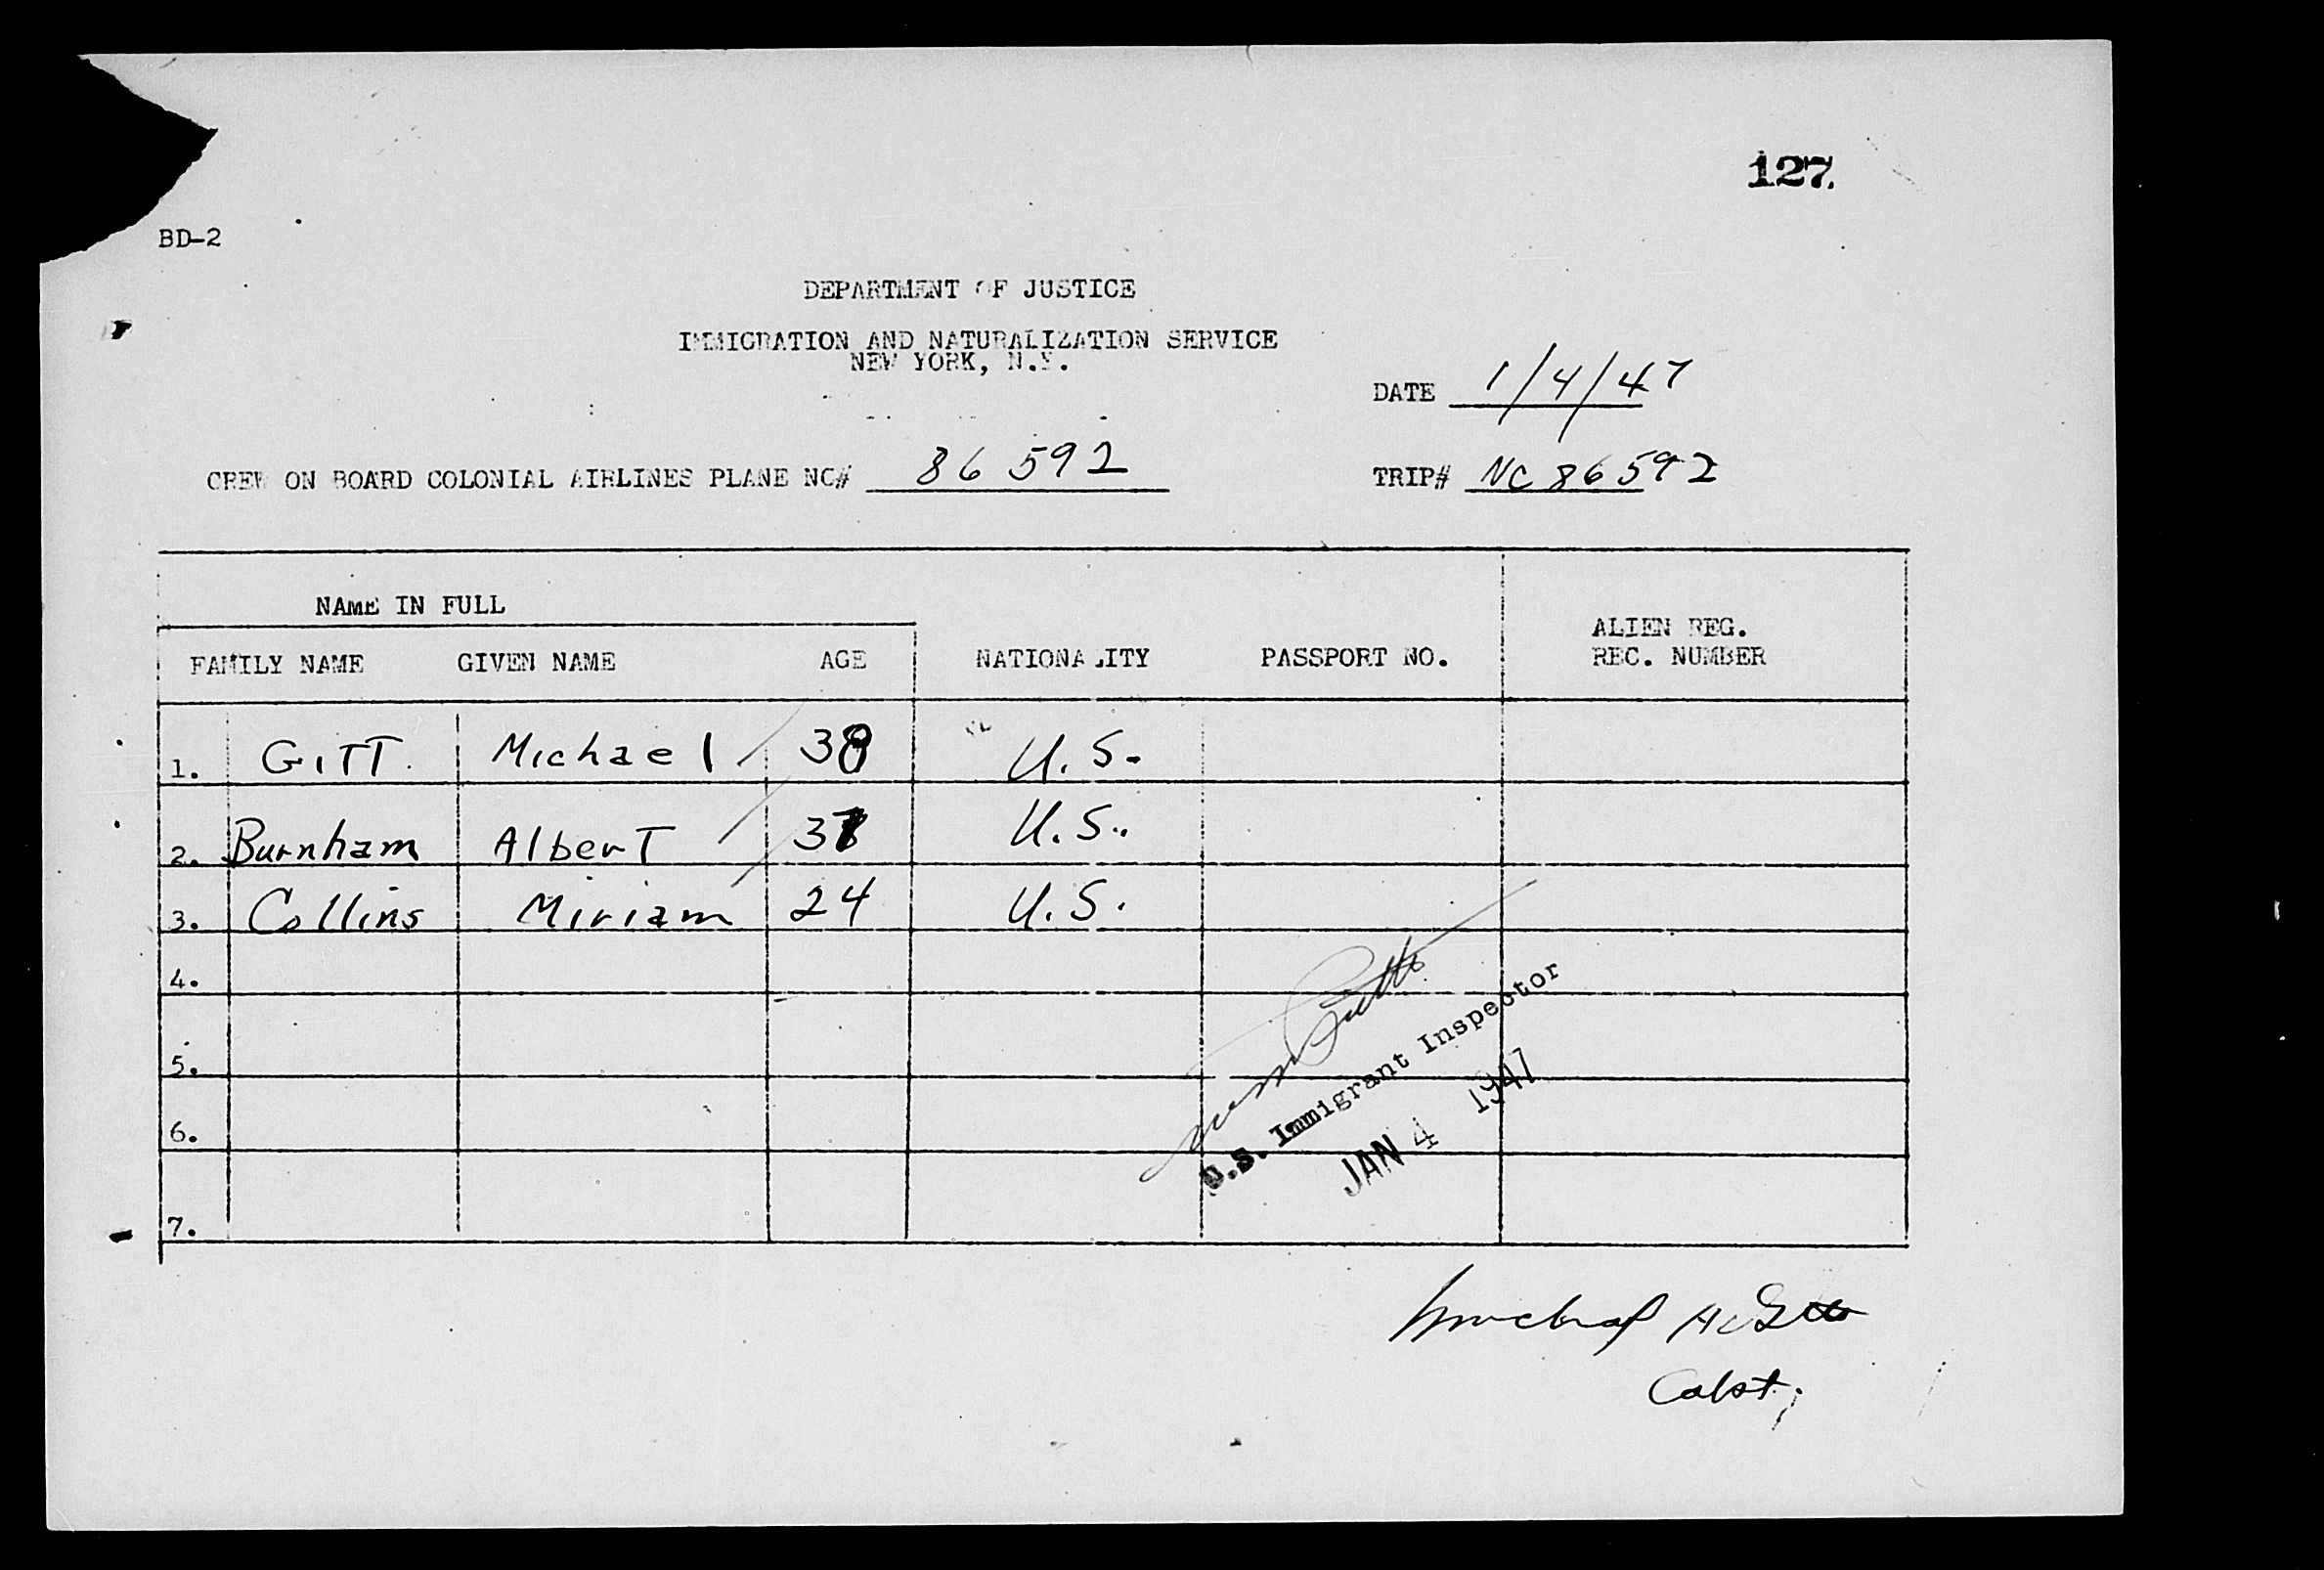 127.
BD-2
DEPARTMENT OF JUSTICE
IMMIGRATION AND NATURALIZATION SERVICE
NEW YORK, N.Y.
DATE 1/4/47
CREW ON BOARD COLONIAL AIRLINES PLANE NC# 86592
TRIP# NC 86592
NAME IN FULL
FAMILY NAME GIVEN NAME AGE NATIONALITY PASSPORT NO. ALIEN REG. REC. NUMBER
1. GITT. Michael 38 U.S.
2. Burnham Albert 37 U.S.
3. Collins Miriam 24 U.S.
4.
5.
6.
7.
U.S. Immigrant Inspector
JAN 4 1947
Michael